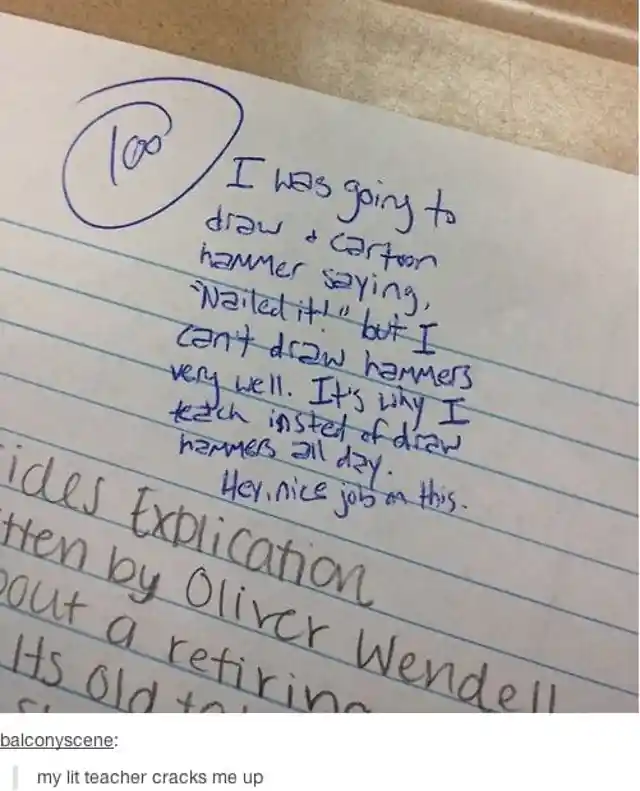 100
I was going to
draw a cartoon
hammer saying,
"Nailed it!" but I
can't draw hammers
very well. It's why I
teach insted of draw
hammers all day.
Hey, nice job on this.
ides Explication
tten by Oliver Wendell
out a retiring
Its old
balconyscene:
my lit teacher cracks me up